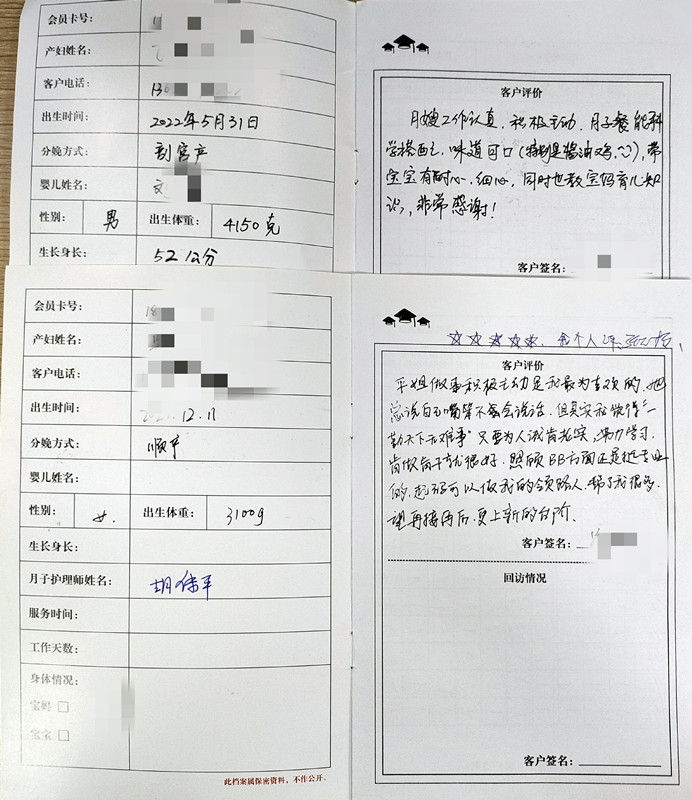 会员卡号:
产妇姓名:
客户电话: 13
出生时间: 2022年5月31日
分娩方式: 剖宫产
婴儿姓名:
性别: 男 出生体重: 4150克
生长身长: 52公分
客户评价
月嫂工作认真、积极主动,月子餐能科
学搭配,味道可口(特别是酱油鸡),带
宝宝有耐心,细心,同时也教宝妈育儿知
识,非常感谢!
客户签名:
会员卡号:
产妇姓名:
客户电话:
出生时间: 12.11
分娩方式: 顺产
婴儿姓名:
性别: 女. 出生体重: 3100g
生长身长:
月子护理师姓名: 胡
服务时间:
工作天数:
身体情况:
宝妈
宝宝
此档案属保密资料,不作公开。
☆☆☆☆☆ 个人
客户评价
平姐做事积极主动是我最为喜欢的,她
总说自己嘴笨不会说话,但其实我觉得“一
勤天下无难事”只要为人诚肯老实,努力学习,
肯做肯干就很好,照顾BB方面还是挺专业
的,起码可以做我的领路人,帮了我很多,
望再接再后,更上新的台阶.
客户签名:
回访情况
客户签名: